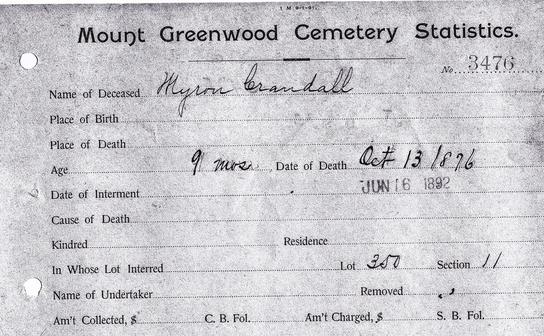 Mount Greenwood Cemetery Statistics.
No. 3476
Name of Deceased Myron Crandall
Place of Birth
Place of Death
Age 9 mos. Date of Death Oct 13 1876
Date of Interment JUN 16 1892
Cause of Death
Kindred Residence
In Whose Lot Interred Lot 350 Section 11
Name of Undertaker Removed "
Am't Collected, $ C. B. Fol. Am't Charged, $ S. B. Fol.